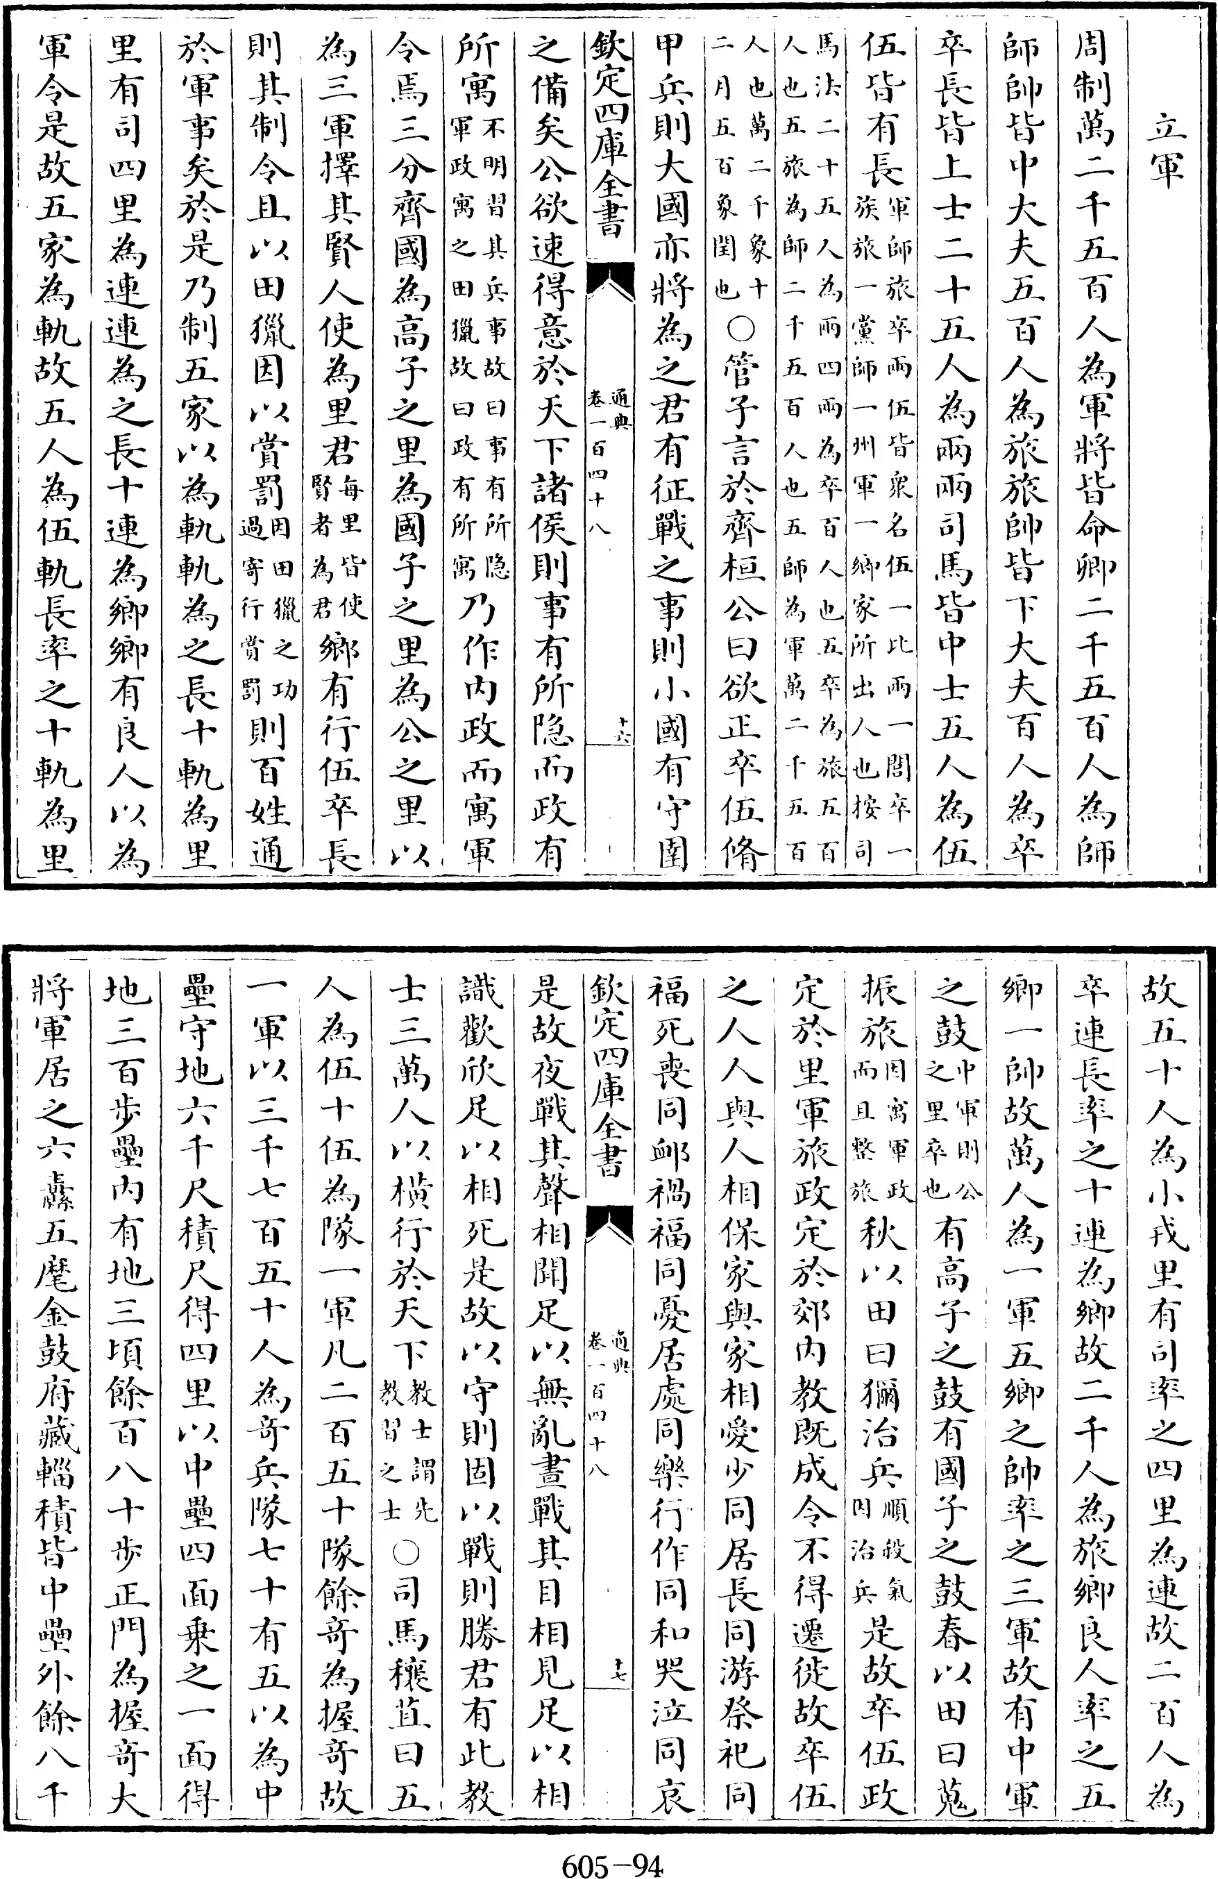 立軍
周制萬二千五百人為軍將皆命卿二千五百人為師
師帥皆中大夫五百人為旅旅帥皆下大夫百人為卒
卒長皆上士二十五人為兩兩司馬皆中士五人為伍
伍皆有長軍師旅卒兩伍皆衆名伍一比兩一閭卒一族旅一黨師一州軍一鄉家所出人也按司
馬法二十五人為兩四兩為卒百人也五卒為旅五百人也五旅為師二千五百人也五師為軍萬二千五百
人也萬二千象十二月五百象閏也○管子言於齊桓公曰欲正卒伍脩
甲兵則大國亦將為之君有征戰之事則小國有守圉
欽定四庫全書 通典卷一百四十八 十六
之備矣公欲速得意於天下諸侯則事有所隐而政有
所寓不明習其兵事故曰事有所隐軍政寓之田獵故曰政有所寓乃作内政而寓軍
令焉三分齊國為高子之里為國子之里為公之里以
為三軍擇其賢人使為里君每里皆使賢者為君鄉有行伍卒長
則其制令且以田獵因以賞罰因田獵之功過寄行賞罰則百姓通
於軍事矣於是乃制五家以為軌軌為之長十軌為里
里有司四里為連連為之長十連為鄉鄉有良人以為
軍令是故五家為軌故五人為伍軌長率之十軌為里
故五十人為小戎里有司率之四里為連故二百人為
卒連長率之十連為鄉故二千人為旅鄉良人率之五
鄉一帥故萬人為一軍五鄉之帥率之三軍故有中軍
之鼓中軍則公之里卒也有高子之鼓有國子之鼓春以田曰蒐
振旅因寓軍政而且整旅秋以田曰獮治兵順殺氣因治兵是故卒伍政
定於里軍旅政定於郊内教既成令不得遷徙故卒伍
之人人與人相保家與家相愛少同居長同游祭祀同
福死喪同卹禍福同憂居處同樂行作同和哭泣同哀
欽定四庫全書 通典卷一百四十八 十七
是故夜戰其聲相聞足以無亂晝戰其目相見足以相
識歡欣足以相死是故以守則固以戰則勝君有此教
士三萬人以橫行於天下教士謂先教習之士○司馬穰苴曰五
人為伍十伍為隊一軍凡二百五十隊餘奇為握奇故
一軍以三千七百五十人為奇兵隊七十有五以為中
壘守地六千尺積尺得四里以中壘四面乘之一面得
地三百步壘内有地三頃餘百八十步正門為握奇大
將軍居之六纛五麾金鼓府藏輜積皆中壘外餘八千
605-94